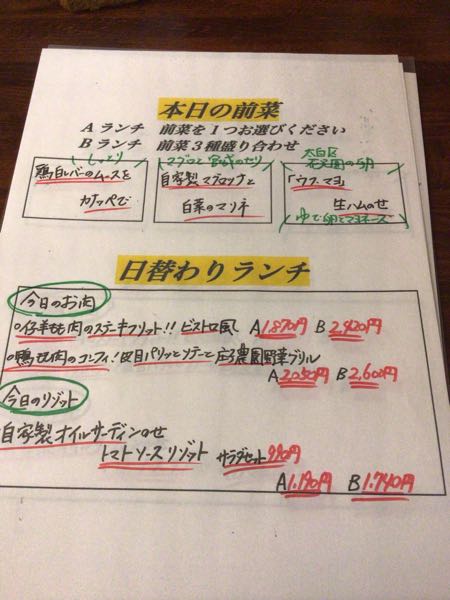 本日の前菜
Aランチ 前菜を1つお選びください
Bランチ 前菜3種盛り合わせ
しっとり
鶏白レバーのムースを
カナッペで
自家製マグロツナと
白菜のマリネ
太白区
「ウフ・マヨ」
生ハムのせ
ゆで卵とマヨネーズ
日替わりランチ
今日のお肉
○仔羊もも肉のステークフリット!! ビストロ風 A1,870円 B2,420円
○鴨もも肉のコンフィ!皮目パリッとソテーと 農園野菜グリル
A2,050円 B2,600円
今日のリゾット
自家製オイルサーディンのせ
トマトソースリゾット サラダセット990円
A1,190円 B1,740円